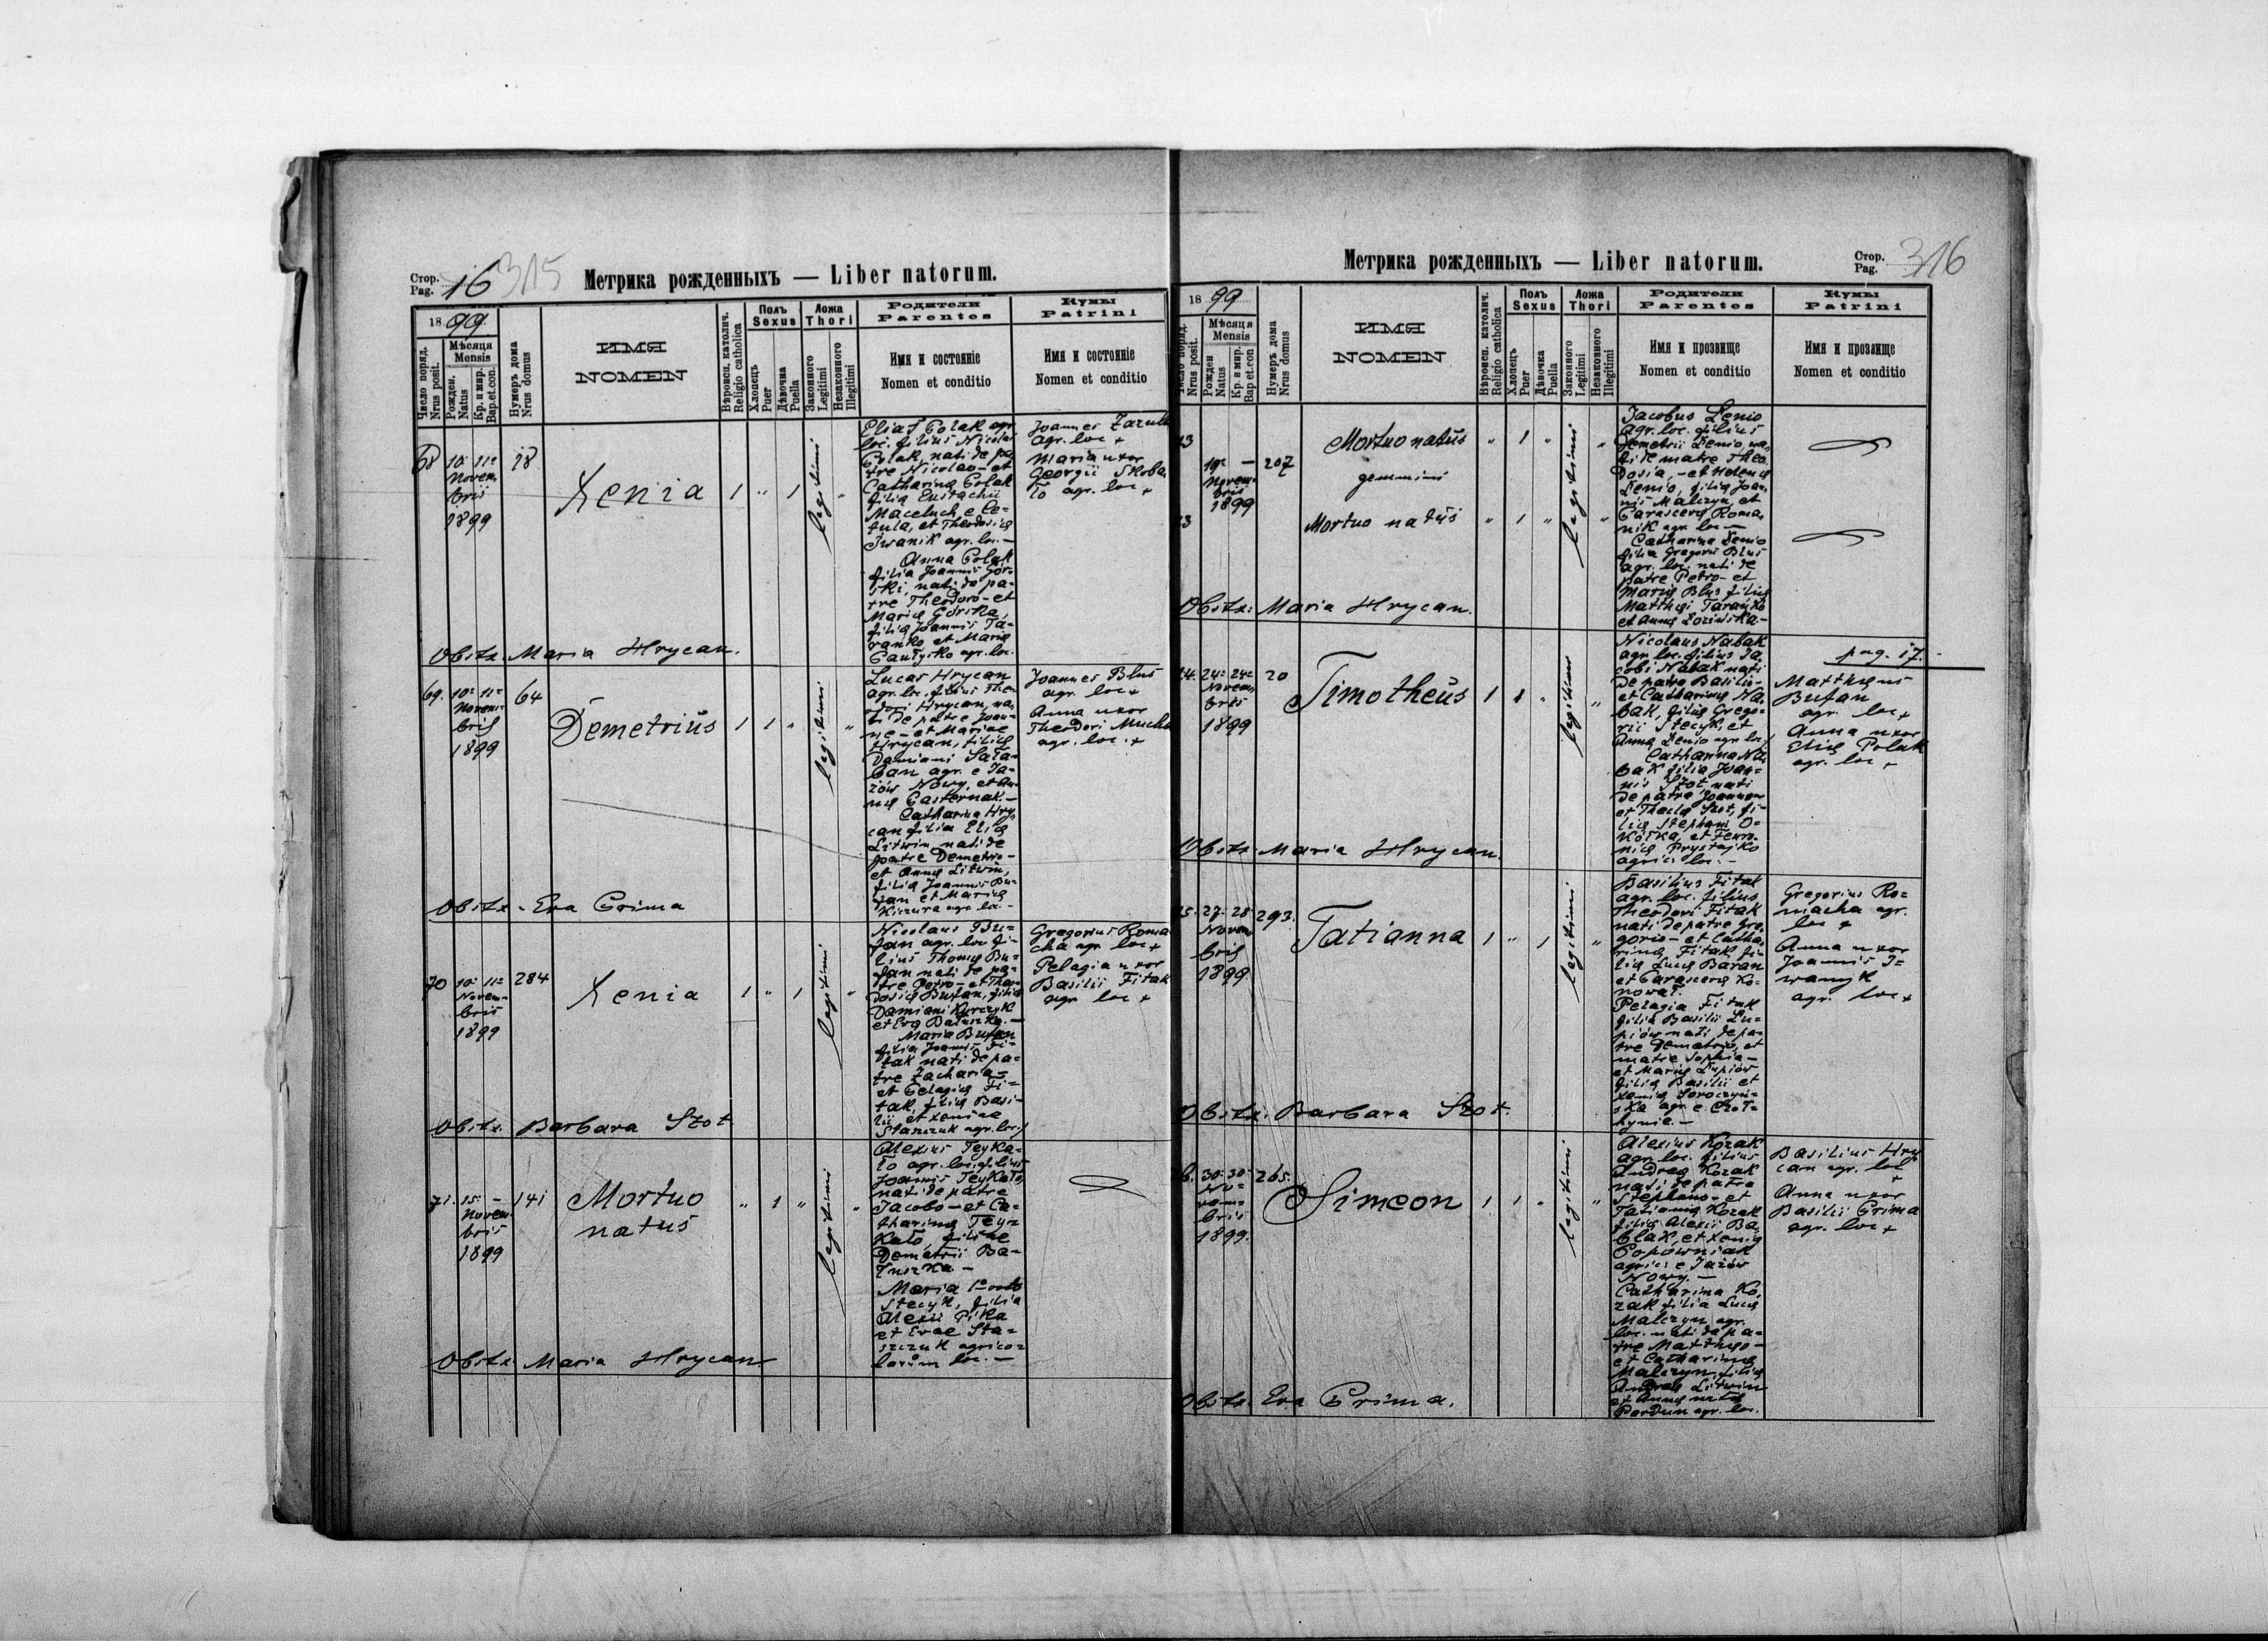 Стор. Pag. 16 315 Метрика рожденныхъ — Liber natorum.
1899
Число поряд. Nrus posit.
Мѣсяця Mensis
Рожден. Natus
Кр. и мир. Bap. et con.
Нумеръ дома Nrus domus
ИМЯ
NOMEN
Вѣроисп. католич. Religio catholica
Полъ Sexus
Хлопецъ Puer
Дѣвочка Puella
Ложа Thori
Законного Legitimi
Незаконного Illegitimi
Родители
Parentes
Имя и состояніе
Nomen et conditio
Кумы
Patrini
Имя и состояніе
Nomen et conditio
68 10. 11. 78
Novem.
bris
1899
Xenia 1 " 1 legitimi "
Elias Polak agr.
loc. filius Nicolai
Polak, nati de pa-
tre Nicolao - et
Catharina Polak
filia Eustachii
Maceluch e Ce-
tula, et Theodosia
Iwanik agr. loc. —
Anna Polak
filia Joannis Gór-
ski, nati de pa-
tre Theodoro - et
Maria Górska,
filia Joannis Ta-
ranko et Maria
agr. loc.
Joannes
agr. loc +
Maria uxor
Georgii Skoba
ło agr. loc +
Obstx. Maria Hrycan.
69. 10. 11. 64
Novem-
bris
1899
Demetriŭs 1 1 " legitimi "
Lucas Hrycan
agr. loc. filius Theo-
odori Hrycan, na-
ti de patre Joan-
ne - et Mariae
Hrycan, filia
Damiani Sała-
ban agr. e Ja-
zów Nowy, et An-
na Pasternak. —
Catharina Hry-
can filia Elia
Litwin nati de
patre Demetrio -
et Anna Litwin,
filia Joannis Bu-
fan et Maria
Kiczura agr. loc. -
Joannes Blus
agr. loc +
Anna uxor
Theodori Mucha
agr. loc. +
Obstx. - Eva Prima
70 10. 11. 284
Novem-
bris
1899
Xenia 1 " 1 legitimi "
Nicolaus Bu-
fan agr. loc fi-
lius Thoma Bu-
fan nati de pa-
tre Petro - et Theo-
dosia Bufan, filia
Damiani Kurczyk
et Eva Bałuszka. —
Maria Bufan
filia Joannis Fi-
tak nati de pa-
tre Zacharia -
et Pelagia Fi-
tak, filia Basi-
lii, et Xeniae
Staszczuk agr. loc.
Gregorius Roma-
cha agr. loc +
Pelagia uxor
Basilii Fitak
agr. loc +
Obstx. Barbara Szot
71. 15. — 141
Novem.
bris
1899
Mortuo
natus
" 1 " legitimi "
Alexius Tejka-
ło agr. loc. filius
Joannis Tejkało,
nati de patre
Jacobo - et Ca-
tharina Tej-
kało, filiae
Demetrii Ba-
łuszka —
Maria 1o voto
Stecyk, filia
Alexii Pika
et Evae Sta-
szczuk agrico-
larum loc. —
Obstx. Maria Hrycan
Метрика рожденныхъ — Liber natorum. Стор. Pag. 316
1899
Число поряд. Nrus posit.
Мѣсяця Mensis
Рожден Natus
Кр. и мир. Bap et con
Нумеръ дома Nrus domus
ИМЯ
NOMEN
Вѣроисп. католич. Religio catholica
Полъ Sexus
Хлопецъ Puer
Дѣвочка Puella
Ложа Thori
Законного Legitimi
Незаконного Illegitimi
Родители
Parentes
Имя и прозвище
Nomen et conditio
Кумы
Patrini
Имя и прозвище
Nomen et conditio
19. — 207
Novem-
bris
1899
Mortuo natŭs " 1 " legitimi "
gemmini
Mortuo natŭs " 1 " "
Jacobus Denio
agr. loc. filius
Demetrii Denio, na-
ti de matre Theo-
dosia, - et Helena
Denio, filia Joan-
nis Malczyn, et
Parasceva Roma-
nik agr. loc —
Catharina Denio
filia Gregorii Blus
agr. loc. nati de
patre Petro - et
Maria Blus filia
Matthei Tarańko
et Anna Łozińska -
Obstx: Maria Hrycan.
pag. 17.
74. 24. 24. 20
Novem.
bris
1899
Timotheŭs 1 1 " legitimi "
Nicolaus Nabak
agr. loc. filius Ja-
cobi Nabak nati
de patre Basilio -
et Catharina Na-
bak, filia Grego-
rii Stecyk, et
Anna Denio agr. loc.
Catharina Na-
bak filia Joan-
nis Szot nati
de patre Joanne
et Thecla Szot, fi-
lia Stephani O-
kórka, et Fenn-
nia Prystajko
agric. loc. -
Matthaeus
Bufan
agr. loc +
Anna uxor
Elia Polak
agr. loc +
Obstx. Maria Hrycan.
75. 27. 28 293.
Novem
bris
1899.
Tatianna 1 " 1 legitimi "
Basilius Fitak
agr. loc. filius
Theodori Fitak
nati de patre Gre-
gorio - et Catha-
rina Fitak, fi-
lia Luca Baran
et Parasceva Ko-
nował.
Pelagia Fitak
filia Basilii Łu-
piów nati de pa-
tre Demetrio, et
matre Sophia —
et Maria Łupiów
filia Basilii et
Xenia Soroczyń-
ska agr. e Czoł-
hynie. —
Gregorius Ro-
macha agr.
loc +
Anna uxor
Joannis I-
wanyk
agr. loc +
Obstx. Barbara Szot.
6. 30. 30. 265.
No-
vem
bris
1899.
Simeon 1 1 " legitimi "
Alexius Kozak
agr. loc. filius
Andrea Kozak
nati de patre
Stephano - et
Tatianna Kozak
filia Alexii Ba-
blak, et Xenia
Popowniak
agric. e Jazów
Nowy. —
Catharina Ko-
zak filia Luca
Malczyn agr.
loc. nati de pa-
tre Matthaeo -
et Catharina
Malczyn, filia
Andrea Litwin
et Anna nata
Pardun agr. loc.
Basilius Hry-
can agr. loc
+
Anna uxor
Basilii Prima
agr. loc +
Obstx. Eva Prima.